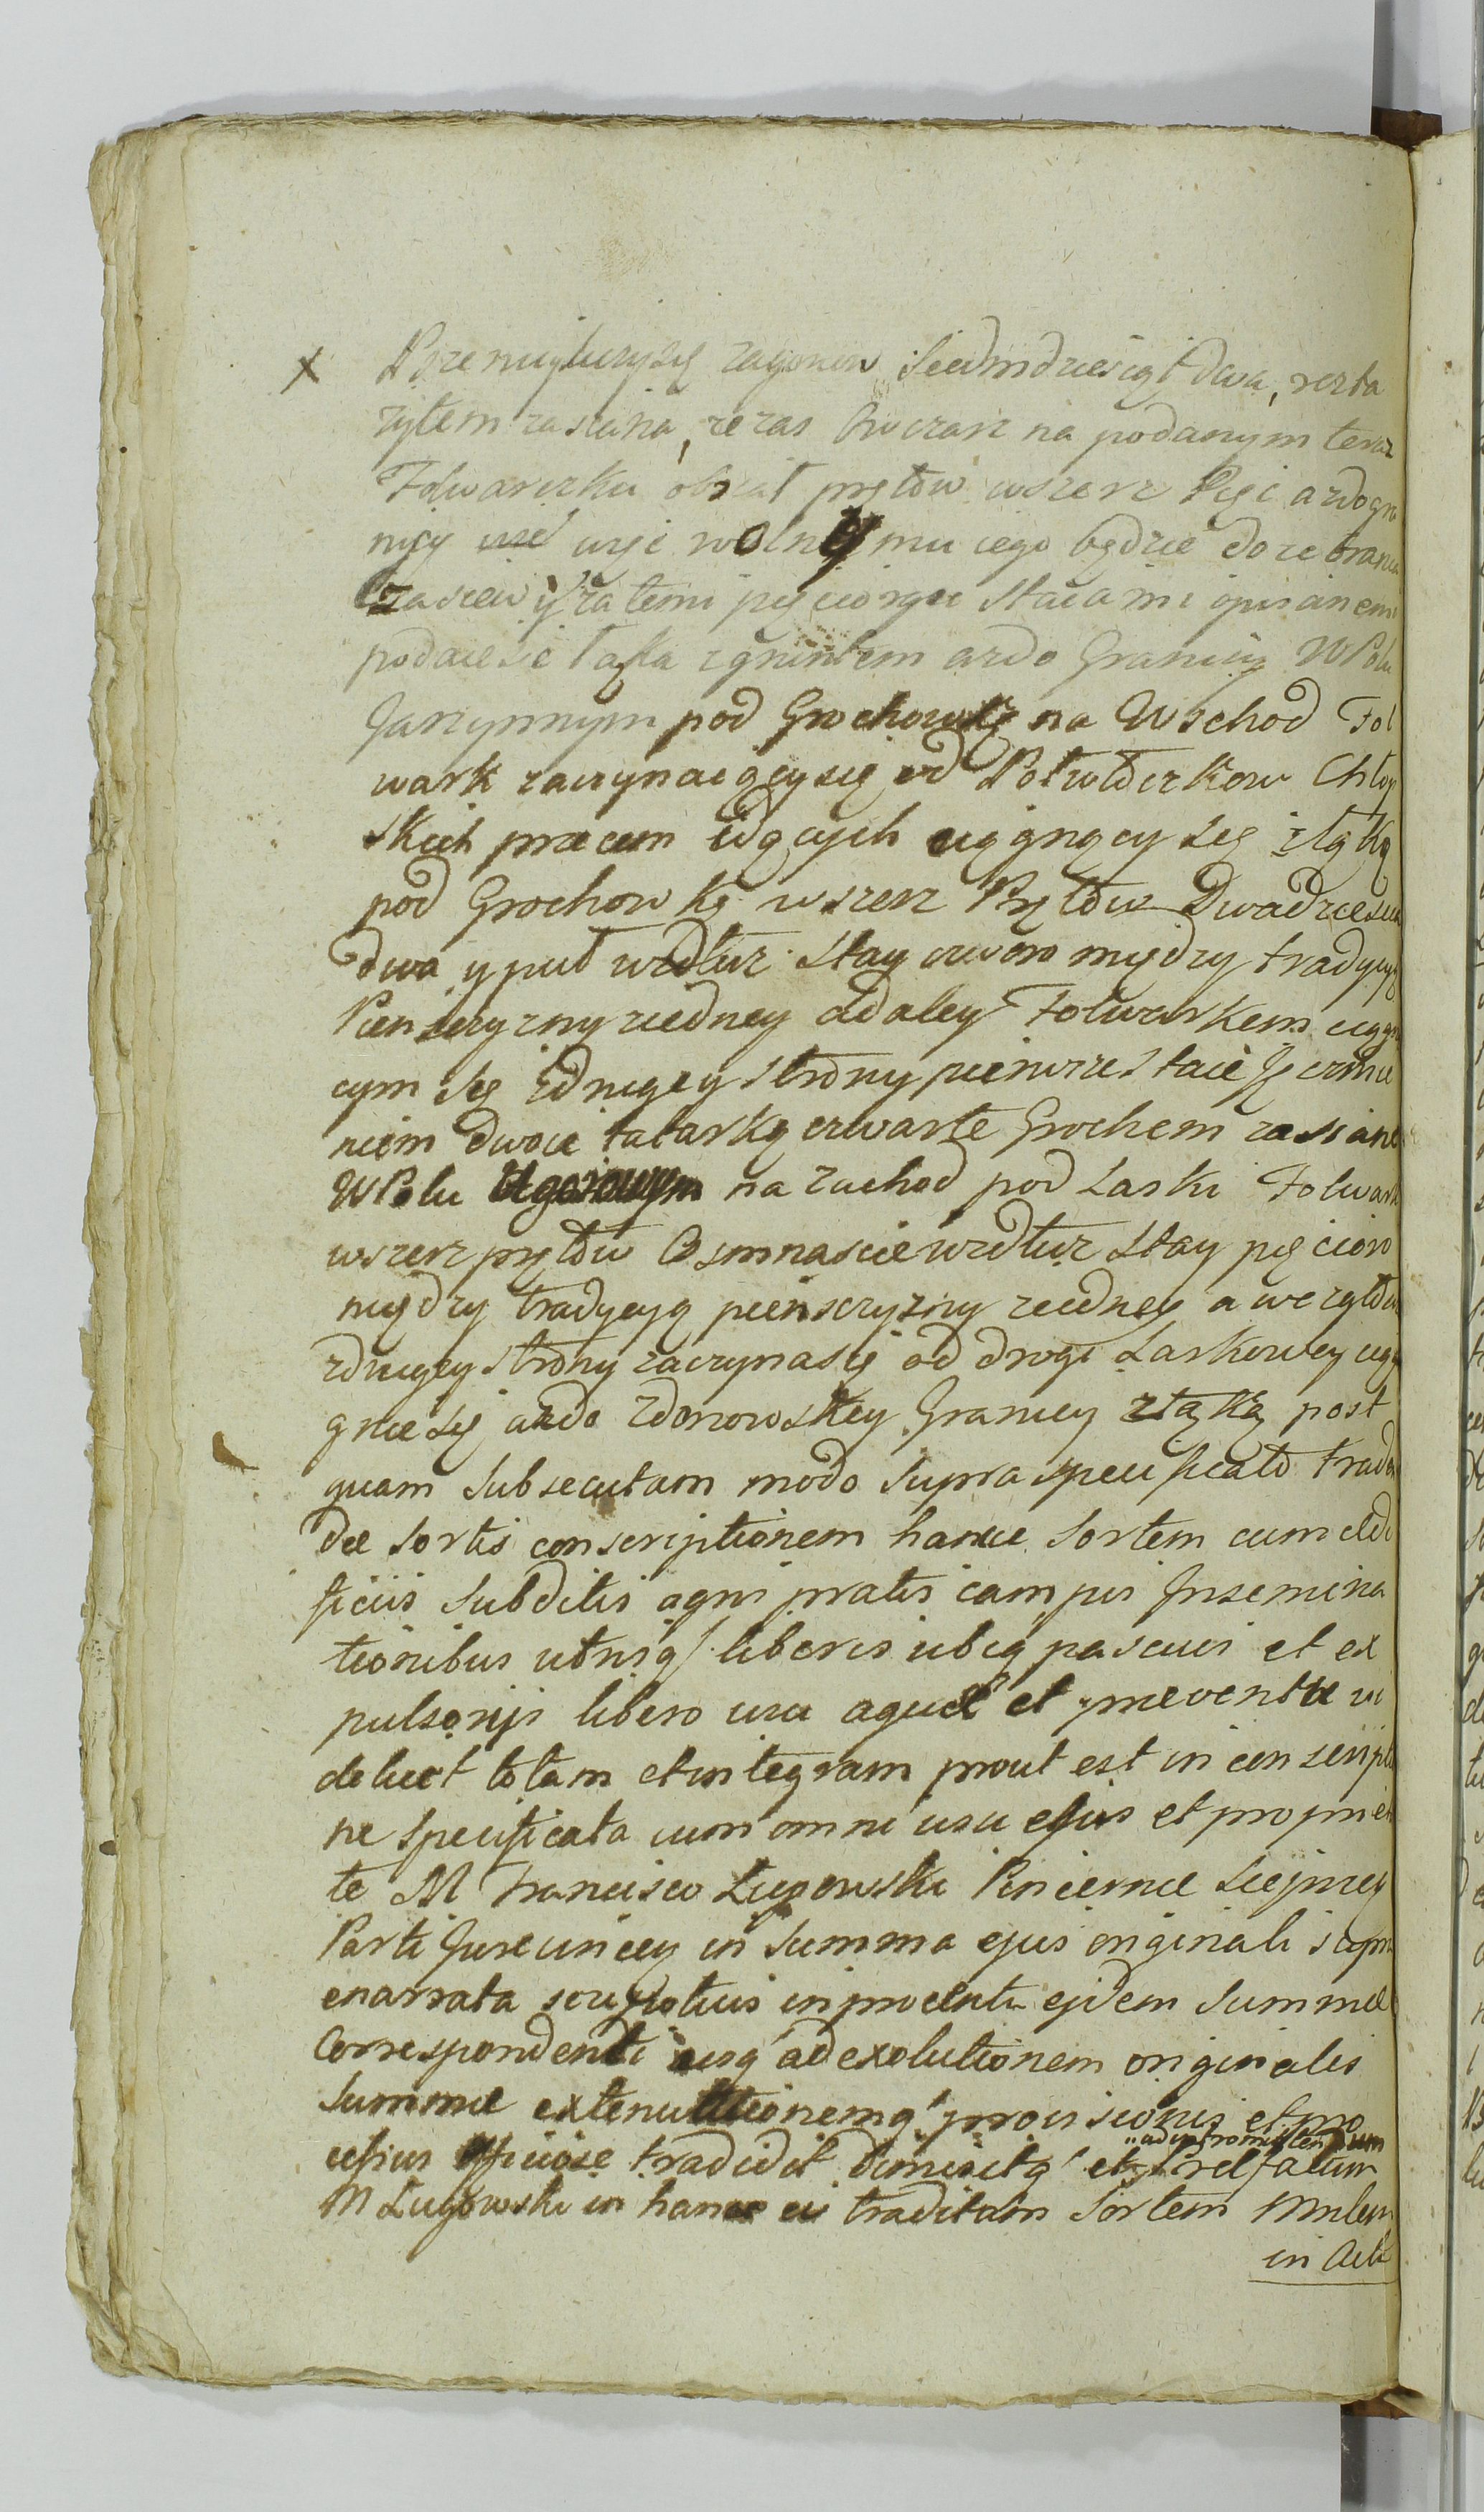 x zagonow Siedmdziesiąt Dwa, reszta
zytem zasiana, ze zas Owczarz na podanym teraz
Folwarczku obsiał prętow wszerz Pięć azdogra
nicy wolny mu iego będzie do zebrania
zasiew y za temi pięciorgu Staiami opisanemi
podaie sie łąka zgruntem azdo Granicy W Polu
Jarzynnym pod Grochowkę na Wschod Fol
wark zaczynaiący się od Połwłoczkow Chłop
skich przecem idących ciągnący się złąką
pod Grochowkę wszerz Prętow Dwadziescia
dwa y puł wzdłuz Stay czworo między tradycyą
Pienszczyzny ziedney adaley Folwarkem ciągn
cym się zdrugey strony pierwsze Staie Jęczmie
niem dwoie tatarką czwarte Grochem zasiane
W Polu Ugorowym na zachod pod Laski Folwark
wszerz prętow Osmnascie wzdłuz Stay pięcioro
między tradycyą pienszczyzny ziedney a
zdrugiey strony zaczynasię od drogi Laskowey ciąg
gniesię azdo Zdonowskiey Granicy złąką post
quam Subsecutam modo supra specificato trada
dae Sortis conscriptionem hancce Sortem cum aedi
ficiis Subditis agris pratis campis Insemina
tionibus utrisq liberis ubiq pascuis et ex
pulsorijs libero usu aquae et proventu vi
delicet totam et integram prout est in conscriptio
ne Specificata cum omni usu ejus et propriet
te M Francisco Ługowski Pincernae
Parti Jurevincey in Summa ejus originali supra
enarrata in provenctu ejdem Summae
Correspondenti usq ad exolutionem originalis
Summae extenuationemq provisionis et pro
cessus officiose tradidit dimisitq et ,, ad intromittendum
M Ługowski in hancce ei traditam Sortem Mnlem
in Acti